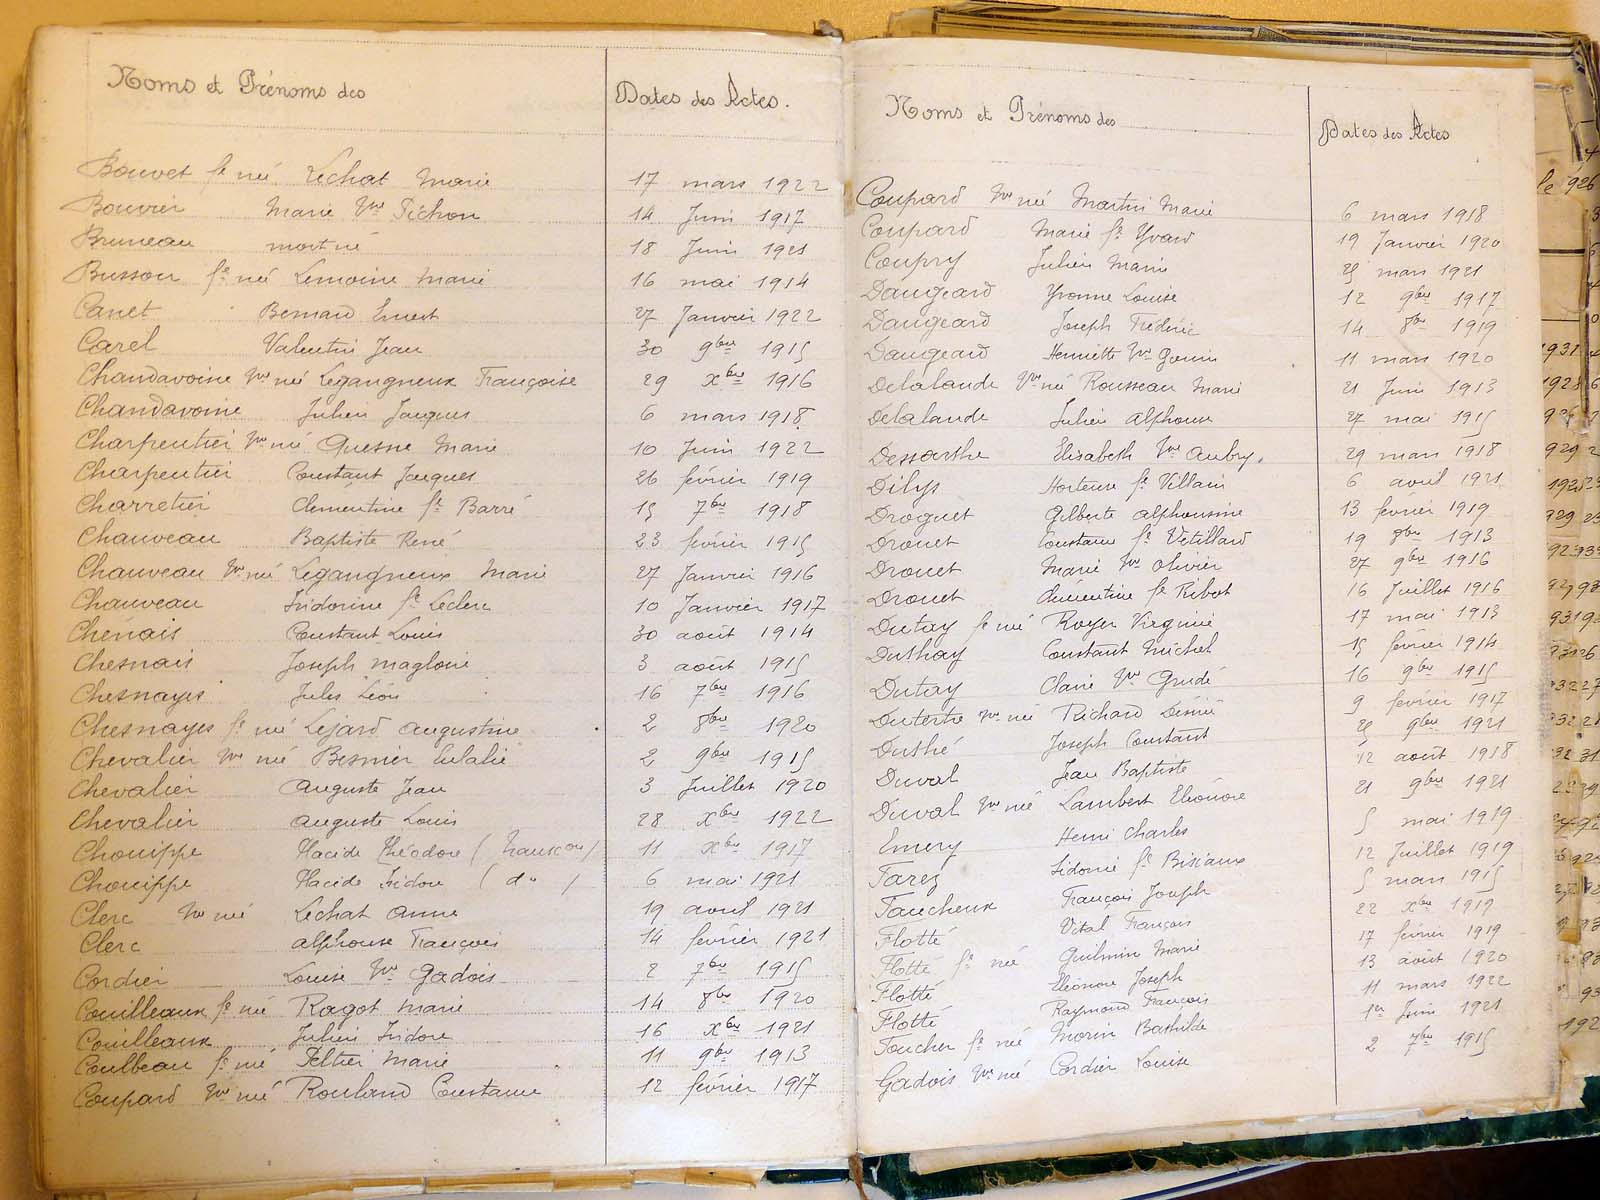 Noms et Prénoms des Dates des Actes.
Bouvet fe née Lechat Marie 17 mars 1922
Bouvier Marie Vve Pichon 14 Juin 1917
Bruneau mort né 18 Juin 1921
Busson fe née Lemoine Marie 16 mai 1914
Canet Bernard Ernest 27 Janvier 1922
Carel Valentin Jean 30 9bre 1915
Chandavoine Vve née Legangneux Françoise 29 Xbre 1916
Chandavoine Julien Jacques 6 mars 1918
Charpentier Vve née Quesne Marie 10 Juin 1922
Charpentier Constant Jacques 26 février 1919
Charretier Clémentine fe Barré 15 7bre 1918
Chauveau Baptiste René 23 février 1915
Chauveau Vve née Legangneux Marie 27 Janvier 1916
Chauveau Isidorine fe Leclerc 10 Janvier 1917
Chenais Constant Louis 30 août 1914
Chesnais Joseph Magloire 3 août 1915
Chesnayes Jules Léon 16 7bre 1916
Chesnayes fe née Lejard Augustine 2 8bre 1920
Chevalier Vve née Besnier Eulalie 2 9bre 1915
Chevalier Auguste Jean 3 Juillet 1920
Chevalier Auguste Louis 28 Xbre 1922
Chouippe Placide Théodore ( Transcon ) 11 Xbre 1917
Chouippe Placide Isidore ( do ) 6 mai 1921
Clerc Vve née Lechat Anne 19 avril 1921
Clerc Alphonse François 14 février 1921
Cordier Louise Vve Gadois 2 7bre 1915
Couilleaux fe née Ragot Marie 14 8bre 1920
Couilleaux Julien Isidore 16 Xbre 1921
Coulbeau fe née Peltier Marie 11 9bre 1913
Coupard Vve née Rouland Constance 12 février 1917
Noms et Prénoms des Dates des Actes
Coupard Vve née Martin Marie 6 mars 1918
Coupard Marie fe Yvard 19 Janvier 1920
Coupry Julien Marie 25 mars 1921
Daugeard Yvonne Louise 12 9bre 1917
Daugeard Joseph Frédéric 14 8bre 1919
Daugeard Henriette Vve Gouin 11 mars 1920
Delalande Vve née Rousseau Marie 21 Juin 1913
Delalande Julien Alphonse 27 mai 1915
Dessarthe Elisabeth Vve Aubry. 29 mars 1918
Dilys Hortense fe Villain 6 avril 1921
Droguet Gilberte Alphonsine 13 février 1919
Drouet Constance fe Vétillard 19 8bre 1913
Drouet Marie Vve Olivier 27 9bre 1916
Drouet Clémentine fe Ribot 16 Juillet 1916
Dutay fe née Royer Virginie 17 mai 1913
Duthay Constant Michel 15 février 1914
Dutay Claire Vve Grudé 16 9bre 1915
Dutertre Vve née Richard Désirée 9 février 1917
Duthé Joseph Constant 9bre 1921
Duval Jean Baptiste 12 août 1918
Duval Vve née Lambert Eléonore 21 9bre 1921
Emery Henri Charles 5 mai 1919
Farez Sidonie fe Bisiaux 12 Juillet 1919
Faucheux François Joseph 5 mars 1915
Flotté Vital François 22 Xbre 1919
Flotté fe née Guilmin Marie 17 février 1919
Flotté Eléonore Joseph 13 août 1920
Flotté Raymond François 11 mars 1922
Foucher fe née Morin Bathilde 1er Juin 1921
Gadois Vve née Cordier Louise 2 7bre 1915